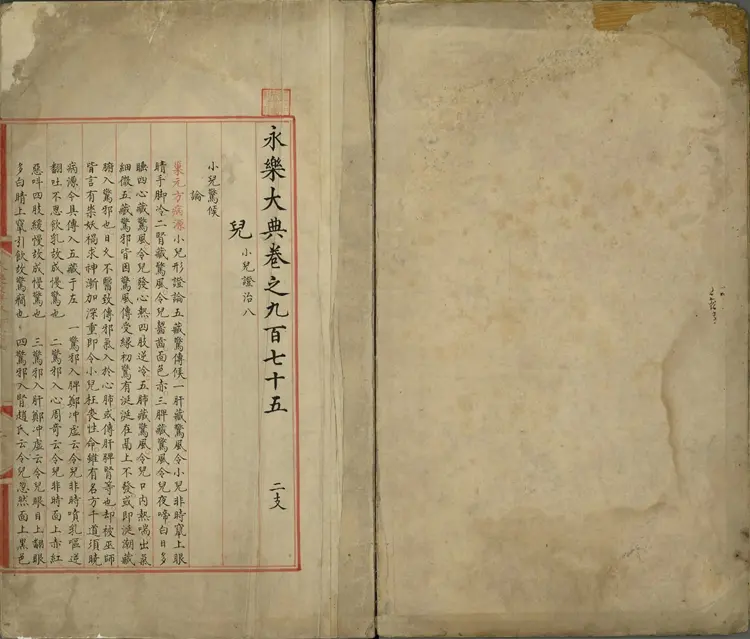 永樂大典卷之九百七十五 二支
兒 小兒證治八
小兒驚候
論
巢元方病源小兒形證論五藏驚傳候一肝藏驚風令小兒非時竄上眼
睛手脚冷二腎藏驚風令兒齧齒面色赤三脾藏驚風令兒夜啼白日多
睡四心藏驚風令兒發心熱四肢逆冷五肺藏驚風令兒口内熱喘出氣
細微五藏驚邪皆因驚風傳受緣初驚有涎涎在鬲上不發或即涎潮藏
腑入驚邪也日久不醫致傳邪氣入於心肺或傳肝脾腎等也却被巫師
皆言有祟妖禍求神漸加深重即令小兒枉喪性命雖有名方千道須曉
病源今具傳入五藏于左 一驚邪入脾鄭冲虛云令兒非時噴乳嘔逆
翻吐不思飲乳故成慢驚也 二驚邪入心周竒云令兒非時面上赤紅
惡叫四肢緩慢故成慢驚也 三驚邪入肝鄭冲虛云令兒眼目上翻眼
多白睛上竄引飲故驚癇也 四驚邪入腎趙氏云令兒忽然面上黑色